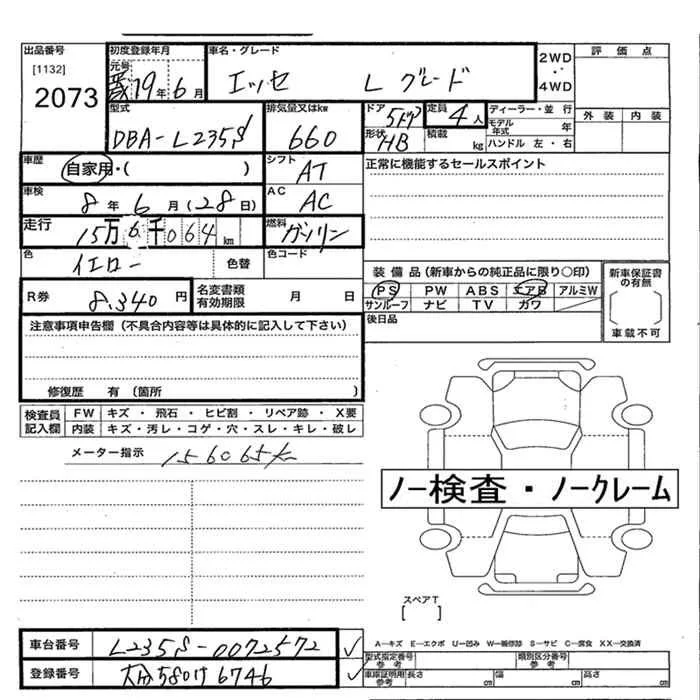 出品番号
[1132]
2073
初度登録年月
元号
19年6月
車名・グレード
エッセ L グレード
2WD
・
4WD
評価点
外装 内装
型式
DBA-L235S
排気量又はkw
660
ドア
5ドア
形状
HB
定員
4人
積載
kg
ディーラー・並行
モデル年式 年
ハンドル 左・右
車歴
自家用・( )
シフト
AT
正常に機能するセールスポイント
車検
8年6月(28日)
AC
AC
走行
15万6千064km
燃料
ガソリン
色
イエロー
色替
色コード
装備品(新車からの純正品に限り○印)
PS PW ABS エアB アルミW
サンルーフ ナビ TV カワ
新車保証書の有無
車載不可
R券
8,340円
名変書類有効期限
月 日
後日品
注意事項申告欄(不具合内容等は具体的に記入して下さい)
修復歴 有(箇所 )
検査員記入欄
FW キズ・飛石・ヒビ割・リペア跡・X要
内装 キズ・汚レ・コゲ・穴・スレ・キレ・破レ
メーター指示
156065K
ノー検査・ノークレーム
スペアT
[ ]
車台番号
L235S-0072572
登録番号
大分580け6746
A―キズ E―エクボ U―凹み W―補修跡 S―サビ C―腐食 XX―交換済
型式指定番号
参考
類別区分番号
参考
車庫証明用
参考
長さ cm
幅 cm
高さ cm